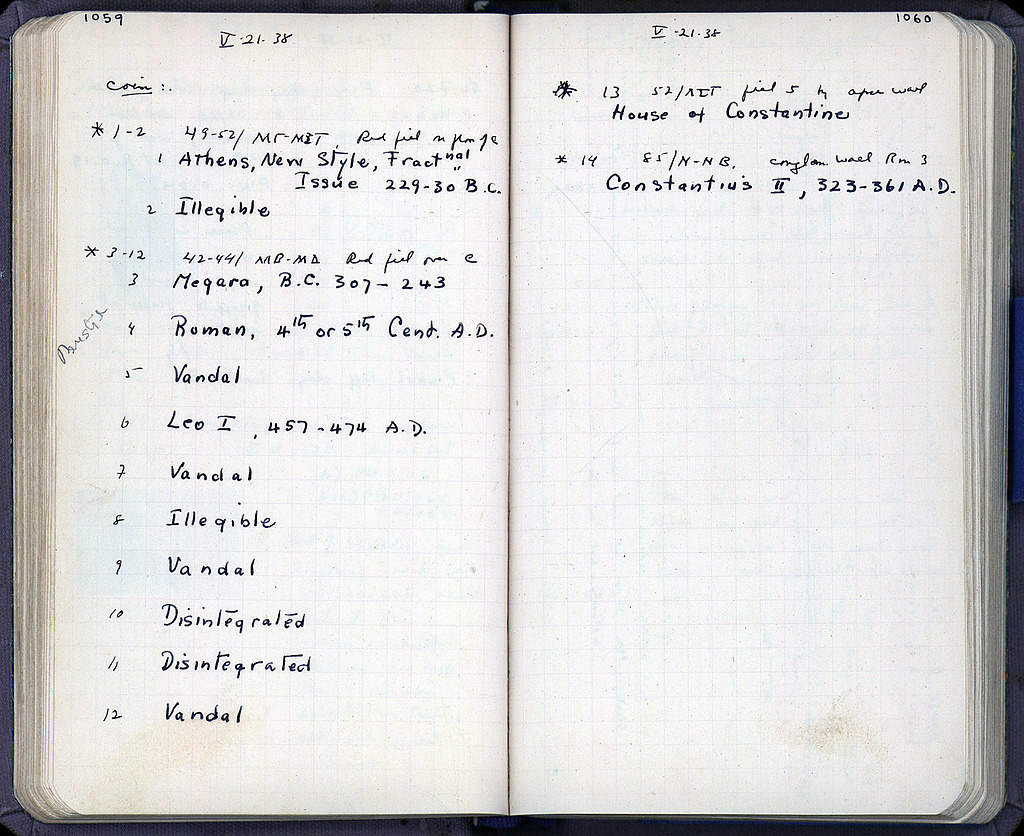 1059
V-21-38
coin:.
* 1-2 49-52/ Red fill
1 Athens, New Style, Fractnal
Issue 229-30 B.C.
2 Illegible
* 3-12 42-44/ Red fill over
3 Megara, B.C. 307-243
4 Roman, 4th or 5th Cent. A.D.
5 Vandal
6 Leo I, 457-474 A.D.
7 Vandal
8 Illegible
9 Vandal
10 Disintegrated
11 Disintegrated
12 Vandal
1060
V-21-38
* 13 52/ fill S apse wall
House of Constantine
* 14 85/N-NB. conglom wall Rm 3
Constantius II, 323-361 A.D.